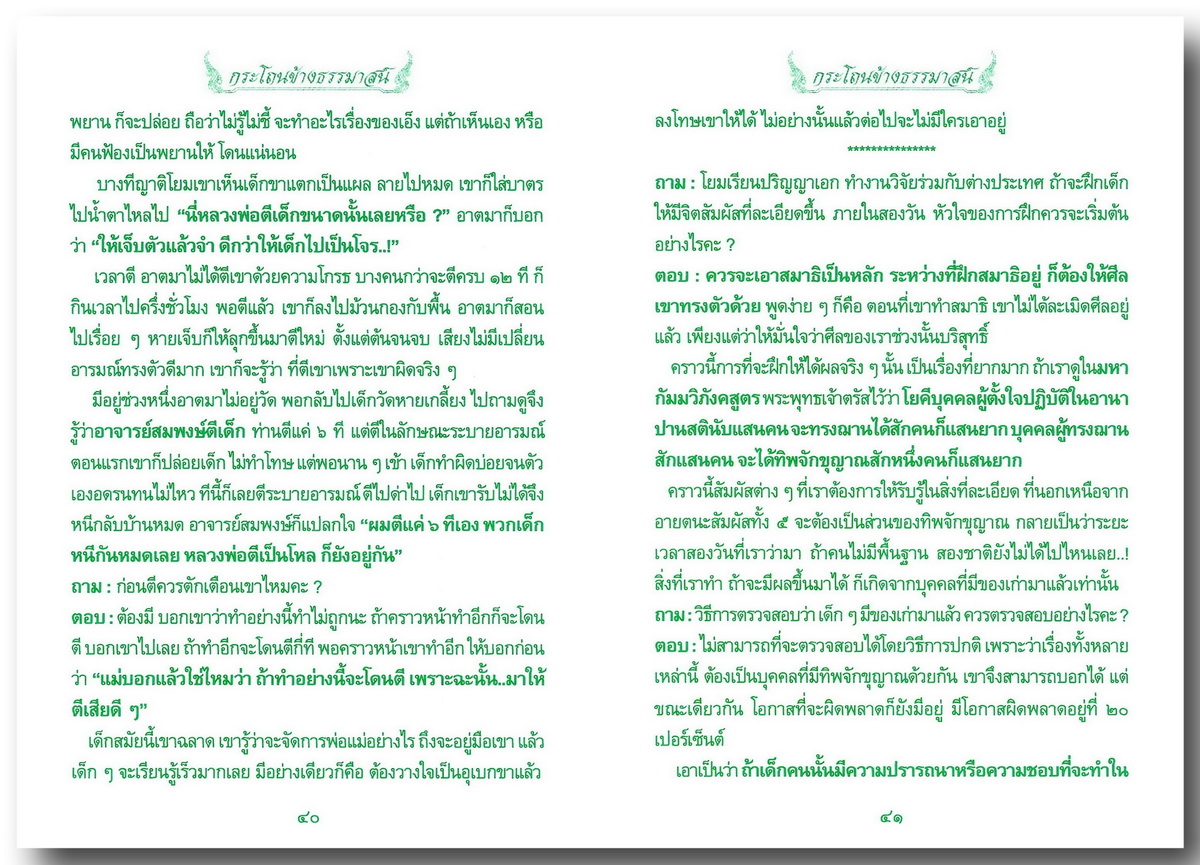 กระโถนข้างธรรมาสน์
พยาน ก็จะปล่อย ถือว่าไม่รู้ไม่ชี้ จะทำอะไรเรื่องของเอ็ง แต่ถ้าเห็นเอง หรือ
มีคนฟ้องเป็นพยานให้ โดนแน่นอน
บางทีญาติโยมเขาเห็นเด็กขาแตกเป็นแผล ลายไปหมด เขาก็ใส่บาตร
ไปน้ำตาไหลไป “นี่หลวงพ่อตีเด็กขนาดนั้นเลยหรือ ?” อาตมาก็บอก
ว่า “ให้เจ็บตัวแล้วจำ ดีกว่าให้เด็กไปเป็นโจร..!”
เวลาตี อาตมาไม่ได้ตีเขาด้วยความโกรธ บางคนกว่าจะตีครบ ๑๒ ที ก็
กินเวลาไปครึ่งชั่วโมง พอตีแล้ว เขาก็ลงไปม้วนกองกับพื้น อาตมาก็สอน
ไปเรื่อย ๆ หายเจ็บก็ให้ลุกขึ้นมาตีใหม่ ตั้งแต่ต้นจนจบ เสียงไม่มีเปลี่ยน
อารมณ์ทรงตัวดีมาก เขาก็จะรู้ว่า ที่ตีเขาเพราะเขาผิดจริง ๆ
มีอยู่ช่วงหนึ่งอาตมาไม่อยู่วัด พอกลับไปเด็กวัดหายเกลี้ยง ไปถามดูจึง
รู้ว่าอาจารย์สมพงษ์ตีเด็ก ท่านตีแค่ ๖ ที แต่ตีในลักษณะระบายอารมณ์
ตอนแรกเขาก็ปล่อยเด็ก ไม่ทำโทษ แต่พอนาน ๆ เข้า เด็กทำผิดบ่อยจนตัว
เองอดรนทนไม่ไหว ทีนี้ก็เลยตีระบายอารมณ์ ตีไปด่าไป เด็กเขารับไม่ได้จึง
หนีกลับบ้านหมด อาจารย์สมพงษ์ก็แปลกใจ “ผมตีแค่ ๖ ทีเอง พวกเด็ก
หนีกันหมดเลย หลวงพ่อตีเป็นโหล ก็ยังอยู่กัน”
ถาม : ก่อนตีควรตักเตือนเขาไหมคะ ?
ตอบ : ต้องมี บอกเขาว่าทำอย่างนี้ทำไม่ถูกนะ ถ้าคราวหน้าทำอีกก็จะโดน
ตี บอกเขาไปเลย ถ้าทำอีกจะโดนตีกี่ที พอคราวหน้าเขาทำอีก ให้บอกก่อน
ว่า “แม่บอกแล้วใช่ไหมว่า ถ้าทำอย่างนี้จะโดนตี เพราะฉะนั้น..มาให้
ตีเสียดี ๆ”
เด็กสมัยนี้เขาฉลาด เขารู้ว่าจะจัดการพ่อแม่อย่างไร ถึงจะอยู่มือเขา แล้ว
เด็ก ๆ จะเรียนรู้เร็วมากเลย มีอย่างเดียวก็คือ ต้องวางใจเป็นอุเบกขาแล้ว
๔๐
กระโถนข้างธรรมาสน์
ลงโทษเขาให้ได้ ไม่อย่างนั้นแล้วต่อไปจะไม่มีใครเอาอยู่
***************
ถาม : โยมเรียนปริญญาเอก ทำงานวิจัยร่วมกับต่างประเทศ ถ้าจะฝึกเด็ก
ให้มีจิตสัมผัสที่ละเอียดขึ้น ภายในสองวัน หัวใจของการฝึกควรจะเริ่มต้น
อย่างไรคะ ?
ตอบ : ควรจะเอาสมาธิเป็นหลัก ระหว่างที่ฝึกสมาธิอยู่ ก็ต้องให้ศีล
เขาทรงตัวด้วย พูดง่าย ๆ ก็คือ ตอนที่เขาทำสมาธิ เขาไม่ได้ละเมิดศีลอยู่
แล้ว เพียงแต่ว่าให้มั่นใจว่าศีลของเราช่วงนั้นบริสุทธิ์
คราวนี้การที่จะฝึกให้ได้ผลจริง ๆ นั้น เป็นเรื่องที่ยากมาก ถ้าเราดูในมหา
กัมมวิภังคสูตร พระพุทธเจ้าตรัสไว้ว่า โยคีบุคคลผู้ตั้งใจปฏิบัติในอานา
ปานสตินับแสนคน จะทรงฌานได้สักคนก็แสนยาก บุคคลผู้ทรงฌาน
สักแสนคน จะได้ทิพจักขุญาณสักหนึ่งคนก็แสนยาก
คราวนี้สัมผัสต่าง ๆ ที่เราต้องการให้รับรู้ในสิ่งที่ละเอียด ที่นอกเหนือจาก
อายตนะสัมผัสทั้ง ๕ จะต้องเป็นส่วนของทิพจักขุญาณ กลายเป็นว่าระยะ
เวลาสองวันที่เราว่ามา ถ้าคนไม่มีพื้นฐาน สองชาติยังไม่ได้ไปไหนเลย..!
สิ่งที่เราทำ ถ้าจะมีผลขึ้นมาได้ ก็เกิดจากบุคคลที่มีของเก่ามาแล้วเท่านั้น
ถาม : วิธีการตรวจสอบว่า เด็ก ๆ มีของเก่ามาแล้ว ควรตรวจสอบอย่างไรคะ ?
ตอบ : ไม่สามารถที่จะตรวจสอบได้โดยวิธีการปกติ เพราะว่าเรื่องทั้งหลาย
เหล่านี้ ต้องเป็นบุคคลที่มีทิพจักขุญาณด้วยกัน เขาจึงสามารถบอกได้ แต่
ขณะเดียวกัน โอกาสที่จะผิดพลาดก็ยังมีอยู่ มีโอกาสผิดพลาดอยู่ที่ ๒๐
เปอร์เซ็นต์
เอาเป็นว่า ถ้าเด็กคนนั้นมีความปรารถนาหรือความชอบที่จะทำใน
๔๑